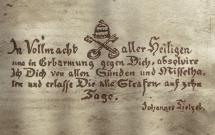 In Vollmacht aller Heiligen
und in Erbarmung gegen Dich, absolvire
ich Dich von allen Sünden und Missetha-
ten und erlasse Dir alle Strafen auf zehn
Tage.
Johannes Tetzel.